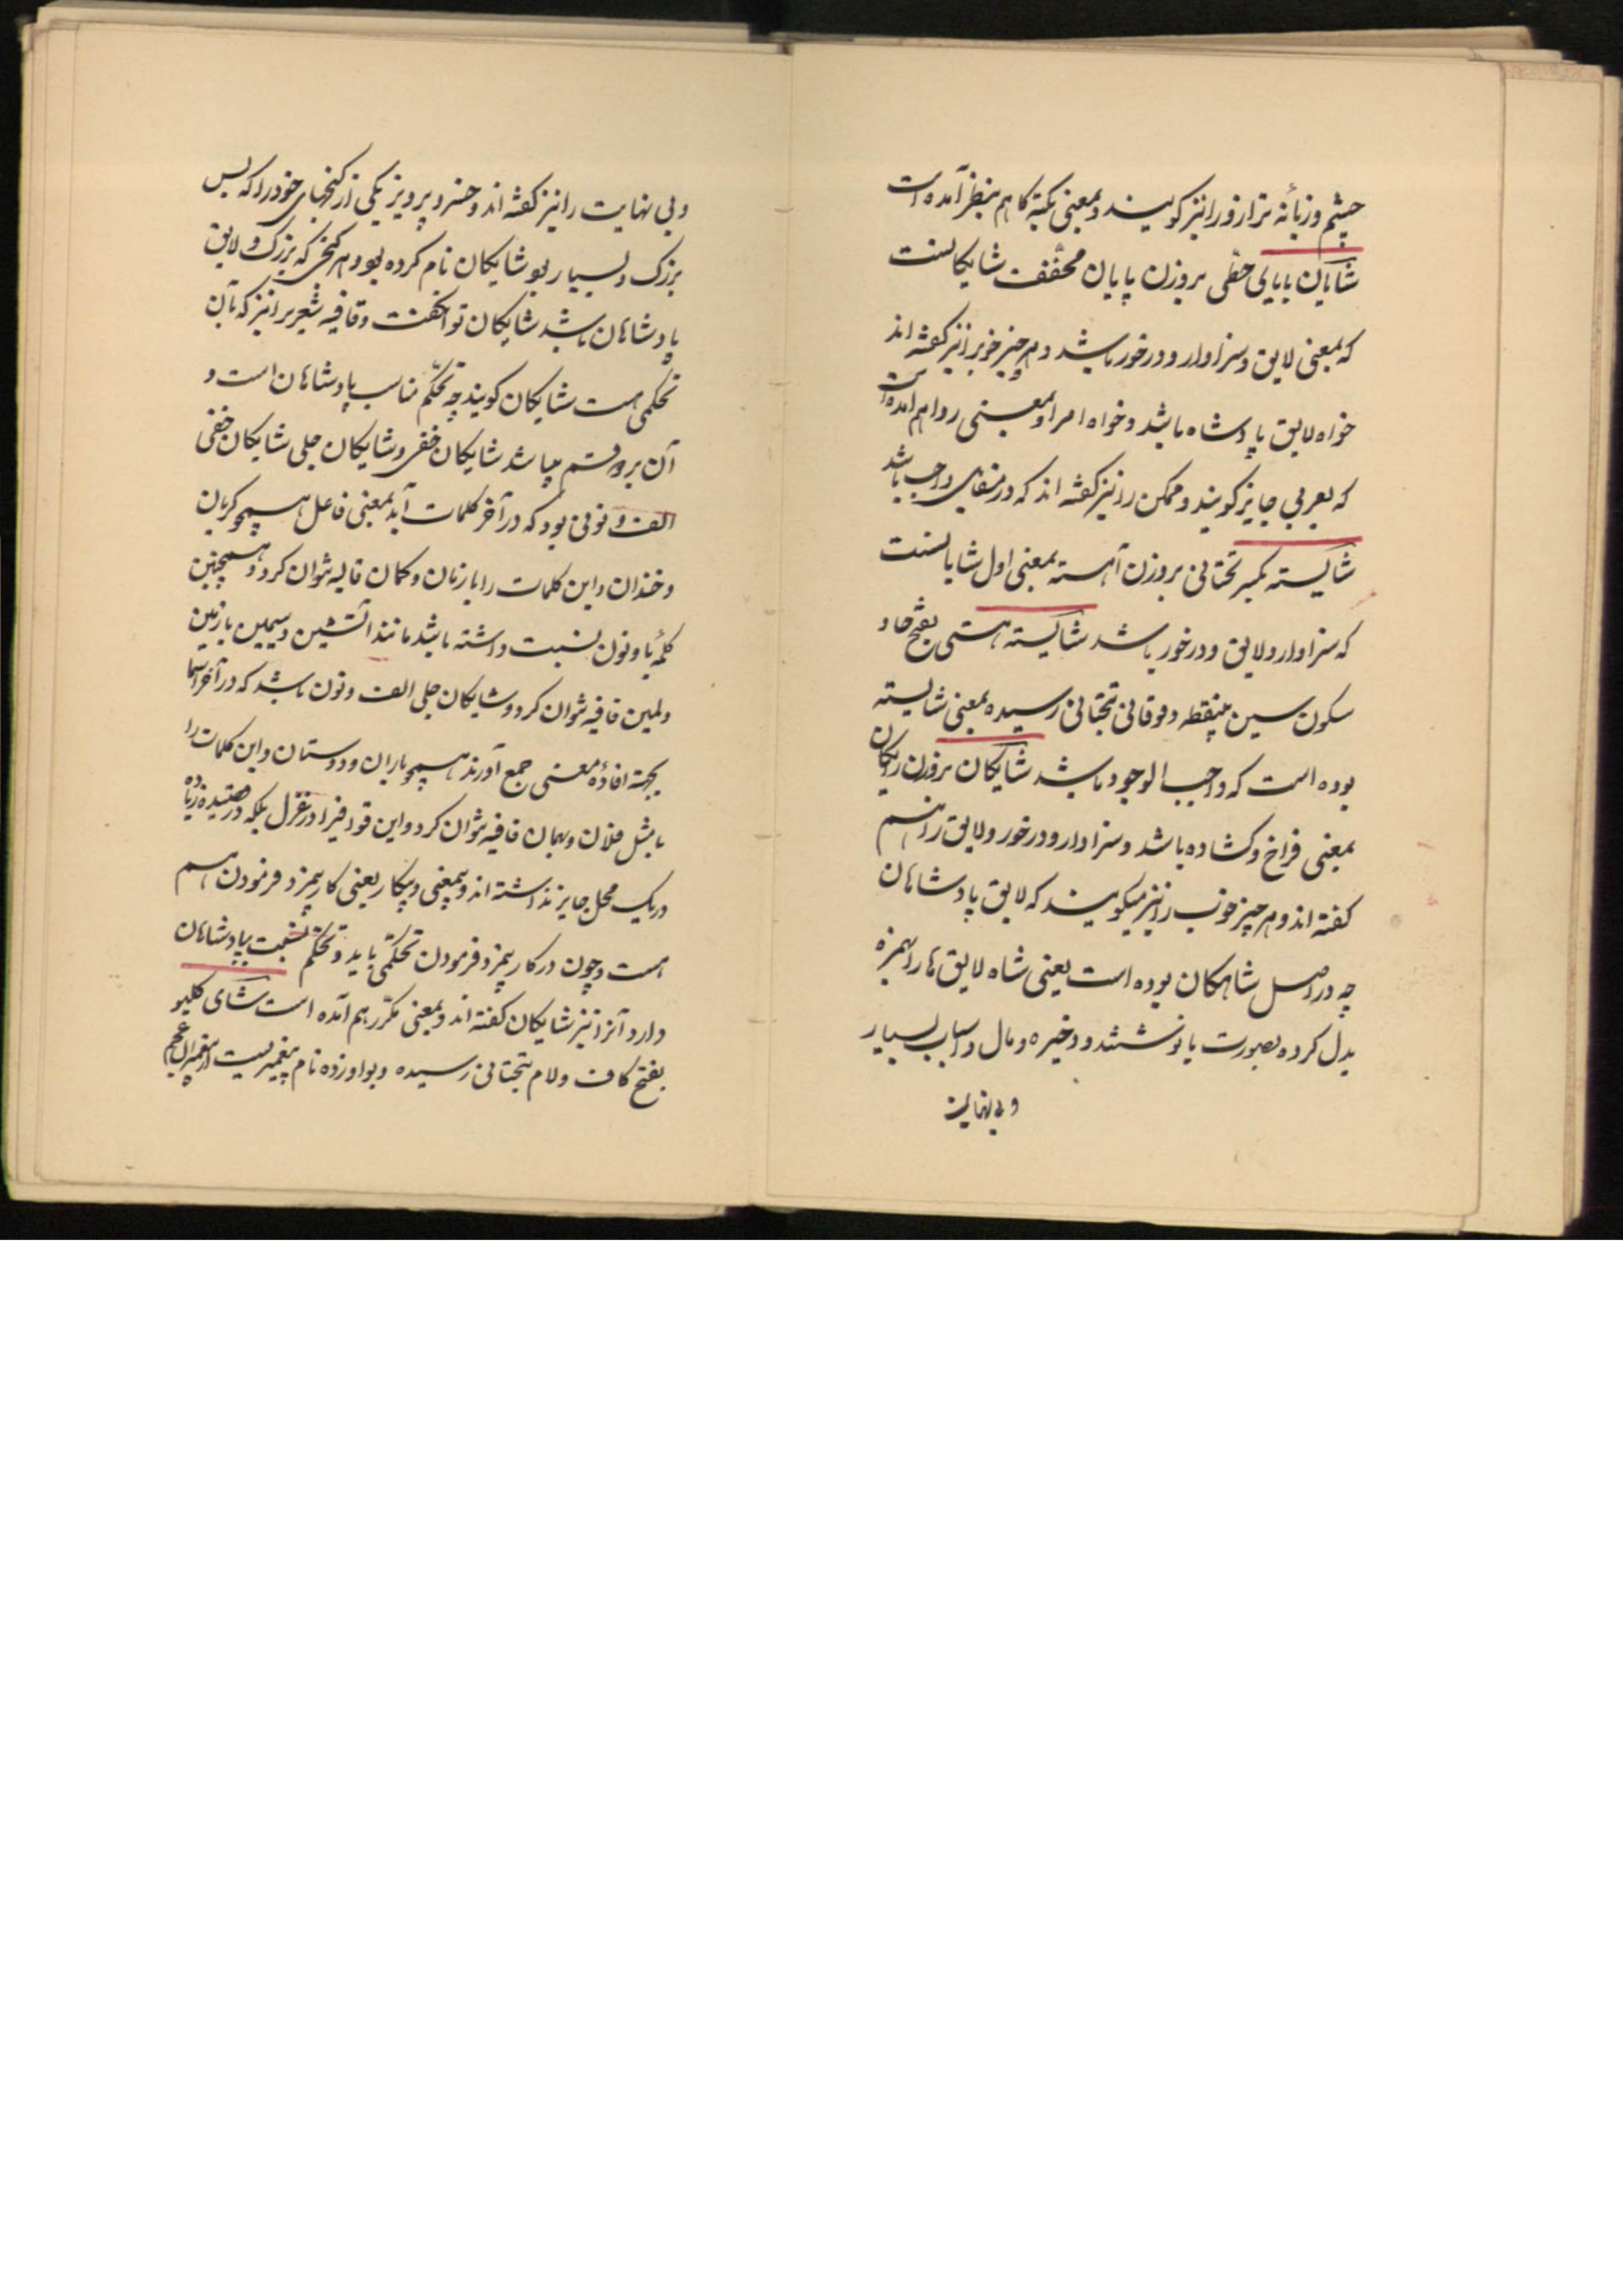 چشم و زبانه ترازو را نیز گویند و بمعنی تکیه کا هم بنظر آمده است
شایان بایای حطّی بروزن پایان مخفّف شایکانست
که بمعنی لایق و سزاوار و درخور باشد و هر چیز خوبرا نیز گفته اند
خواه لایق پادشاه باشد و خواه امرا و بمعنی روا هم آمده است
که بعربی جایز گویند و ممکن را نیز گفته اند که در مقابل واجب باشد
شایسته بکسر تحتانی بروزن آهسته بمعنی اول شایانست
که سزاوار و لایق و درخور باشد شایسته هستی بفتح ها و
سکون سین بینقطه و فوقانی بتحتانی رسیده بمعنی شایسته
بوده است که واجب الوجود باشد شایکان بروزن رایکان
بمعنی فراخ و کشاده باشد و سزاوار و درخور و لایق را هم
گفته اند و هر چیز خوب را نیز میکویند که لایق پادشاهان
چه در اصل شاهکان بوده است یعنی شاه لایق ها را بهمزه
بدل کرده بصورت یا نوشتند و ذخیره و مال و اسباب بسیار
و بی نهایت
و بی نهایت را نیز گفته اند و خسرو پرویز یکی از کنجهای خود را که بس
بزرک و بسیار بود شایکان نام کرده بود و هر کنجی که بزرک و لایق
پادشاهان باشد شایکان توان گفت و قافیه شعر را نیز که بآن
تحکّمی هست شایکان کویند چه تحکّم مناسب پادشاهان است و
آن بر دو قسم میباشد شایکان خفی و شایکان جلی شایکان خفی
الف و نونی بود که در آخر کلمات آید بمعنی فاعل همچو کریان
و خندان و این کلمات را با زمان و کمان قافیه نتوان کرد و همچنین
کلمه یا و نون نسبت داشته باشد مانند آتشین و سیمین با زمین
و لمین قافیه نتوان کرد و شایکان جلی الف و نون باشد که در آخر اسما
بجهته افاده معنی جمع آورند همچو یاران و دوستان و این کلمات را
با مثل فلان و بهمان قافیه نتوان کرد و این قوافی را در غزل بلکه در قصیده زیاده
در یک محل جایز نداشته اند و بمعنی و بیکار یعنی کار بیمزد فرمودن هم
هست و چون در کار بیمزد فرمودن تحکّمی باید و تحکّم نسبت بپادشاهان
دارد آنرا نیز شایکان گفته اند و بمعنی مکرّر هم آمده است شای کلیو
بفتح کاف و لام بتحتانی رسیده و بواو زده نام پیغمبریست از پیغمبران عجم